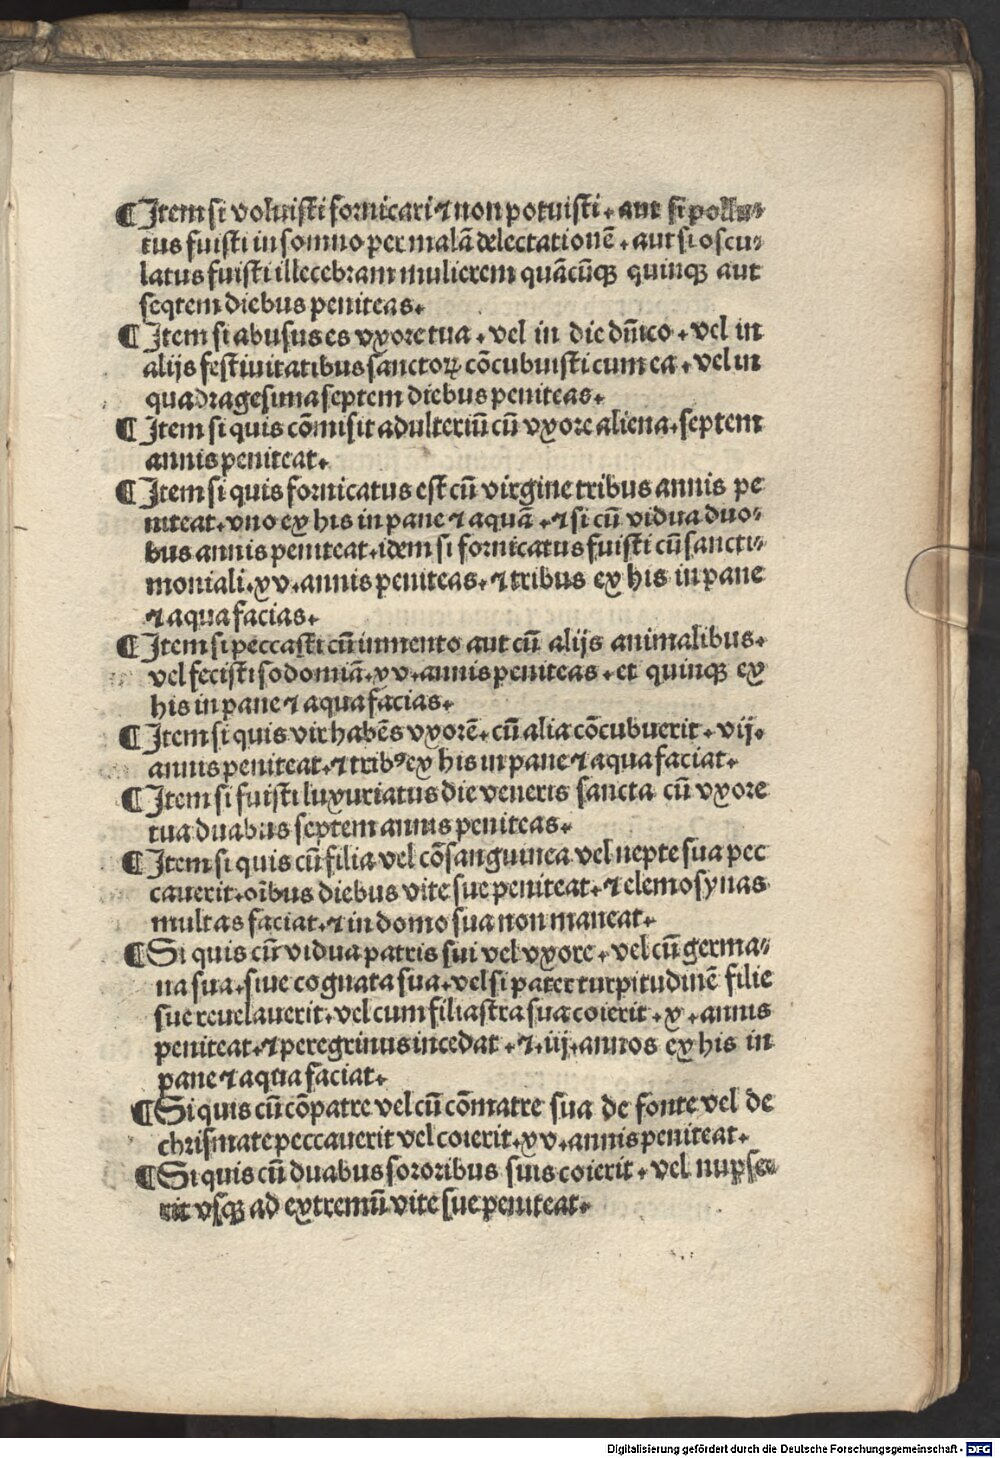 ¶Item si voluisti fornicari ⁊ non potuisti. aut si pollu⸗
tus fuisti in somno per malā delectationē. aut si oscu⸗
latus fuisti illecebram mulierem quācūqꝫ quinqꝫ aut
seqtem diebus peniteas.
¶Item si abusus es vxore tua. vel in die dn̄ico. vel in
alijs festiuitatibus sanctoꝝ cōcubuisti cum ea. vel in
quadragesima septem diebus peniteas.
¶Item si quis cōmisit adulteriū cū vxore aliena. septem
annis peniteat.
¶Item si quis fornicatus est cū virgine tribus annis pe
niteat. vno ex his in pane ⁊ aquā. ⁊ si cū vidua duo⸗
bus annis peniteat. idem si fornicatus fuisti cū sancti⸗
moniali. xv. annis peniteas. ⁊ tribus ex his in pane
⁊ aqua facias.
¶Item si peccasti cū iumento aut cū alijs animalibus.
vel fecisti sodomiā. xv. annis peniteas. et quinqꝫ ex
his in pane ⁊ aqua facias.
¶Item si quis vir habēs vxorē. cū alia cōcubuerit. vij.
annis peniteat. ⁊ tribꝰ ex his in pane ⁊ aqua faciat.
¶Item si fuisti luxuriatus die veneris sancta cū vxore
tua duabus septem annis peniteas.
¶Item si quis cū filia vel cōsanguinea vel nepte sua pec
cauerit. oībus diebus vite sue peniteat. ⁊ elemosynas
multas faciat. ⁊ in domo sua non maneat.
¶Si quis cū vidua patris sui vel vxore. vel cū germa⸗
na sua. siue cognata sua. vel si pater turpitudinē filie
sue reuelauerit. vel cum filiastra sua coierit. x. annis
peniteat. ⁊ peregrinus incedat. ⁊. iij. annos ex his in
pane ⁊ aqua faciat.
¶Si quis cū cōpatre vel cū cōmatre sua de fonte vel de
chrismate peccauerit vel coierit. xv. annis peniteat.
¶Si quis cū duabus sororibus suis coierit. vel nupse⸗
rit vsqꝫ ad extremū vite sue peniteat.
Digitalisierung gefördert durch die Deutsche Forschungsgemeinschaft - DFG